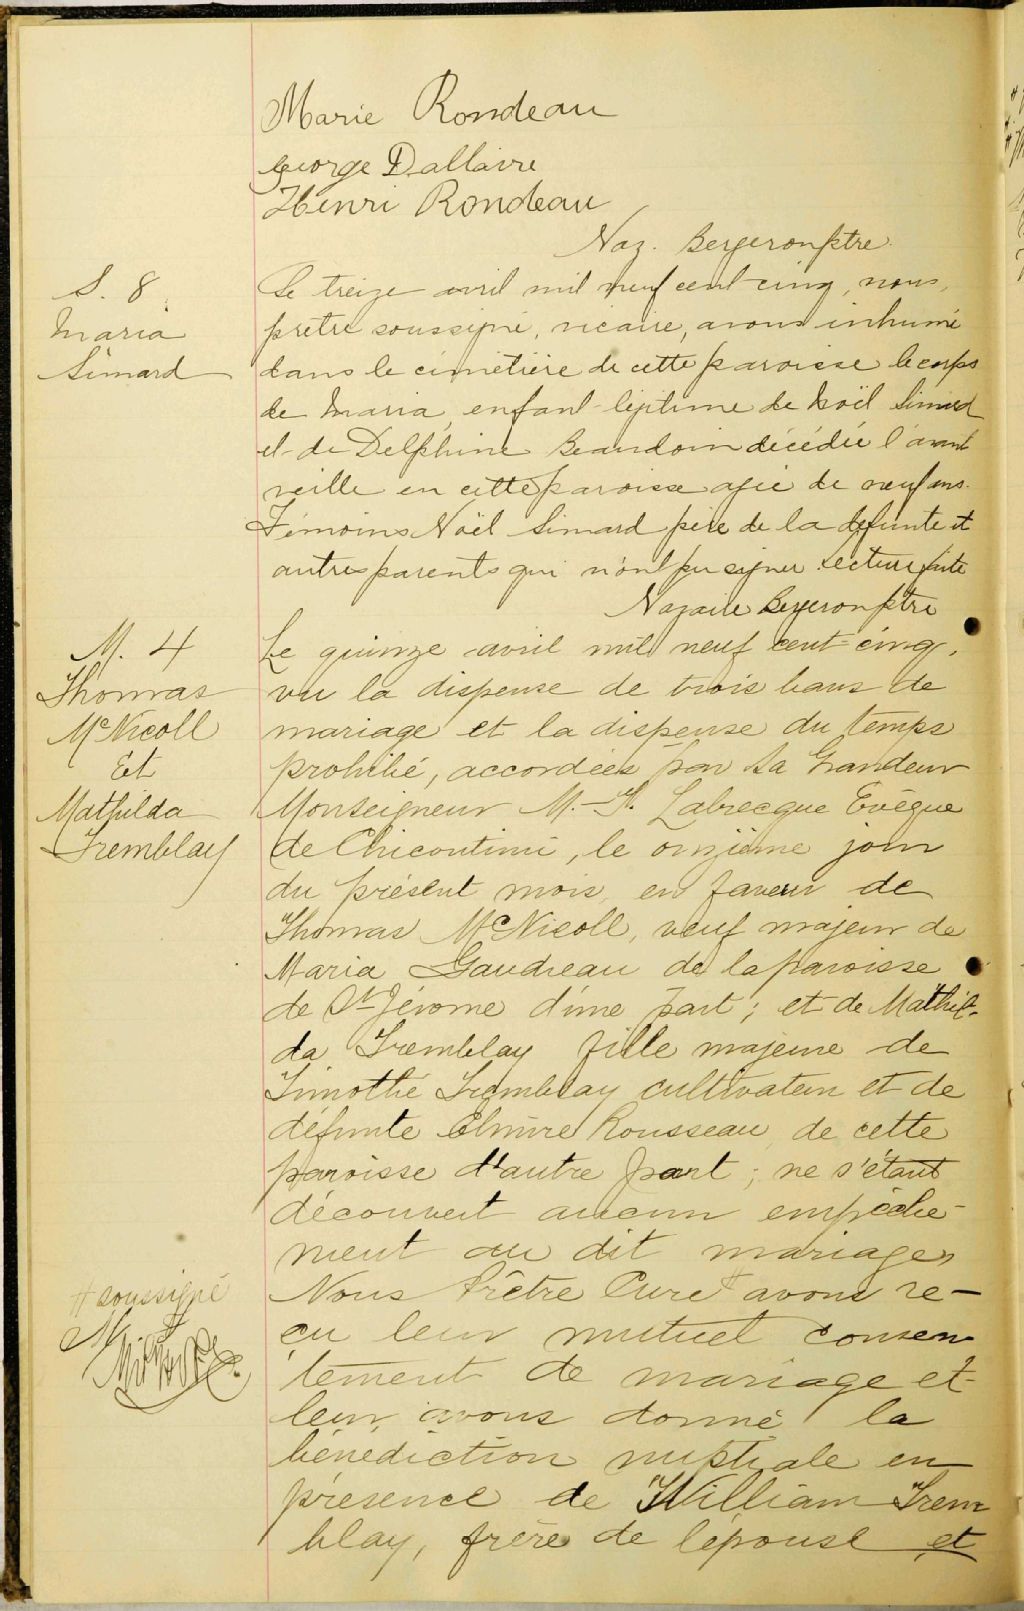 Marie Rondeau
George Dallaire
Henri Rondeau
Naz. Bergeron ptre.
S. 8
Maria
Simard
Le treize avril mil neuf cent cinq, nous,
prêtre soussigné, vicaire, avons inhumé
dans le cimetière de cette paroisse le corps
de Maria, enfant légitime de Noël Simard
et de Delphine Beaudoin décédée l'avant
veille en cette paroisse agée de neuf ans.
Témoins Noël Simard père de la défunte et
autres parents qui n'ont pu signer. Lecture faite
Nazaire Bergeron ptre
M. 4
Thomas
McNicoll
Et
Mathilda
Tremblay
Le quinze avril mil neuf cent cinq,
vu la dispense de trois bans de
mariage et la dispense du temps
prohibé, accordées par Sa Grandeur
Monseigneur M.-T. Labrecque Evêque
de Chicoutimi, le onzième jour
du présent mois, en faveur de
Thomas McNicoll, veuf majeur de
Maria Gaudreau de la paroisse
de St Jérome d'une part; et de Mathil-
da Tremblay fille majeure de
Timothé Tremblay cultivateur et de
défunte Elmire Rousseau de cette
paroisse d'autre part; ne s'étant
découvert aucun empêche-
ment au dit mariage,
Nous Prêtre Curé # avons re-
çu leur mutuel consen
tement de mariage et
leur avons donné la
bénédiction nuptiale en
présence de William Trem
blay, frère de l'épouse et
# soussigné